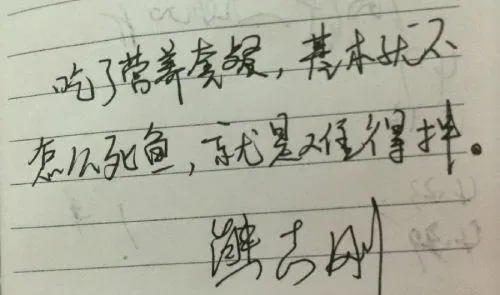 吃了营养套餐，基本就不
怎么死鱼，就是难得拌。
熊志刚